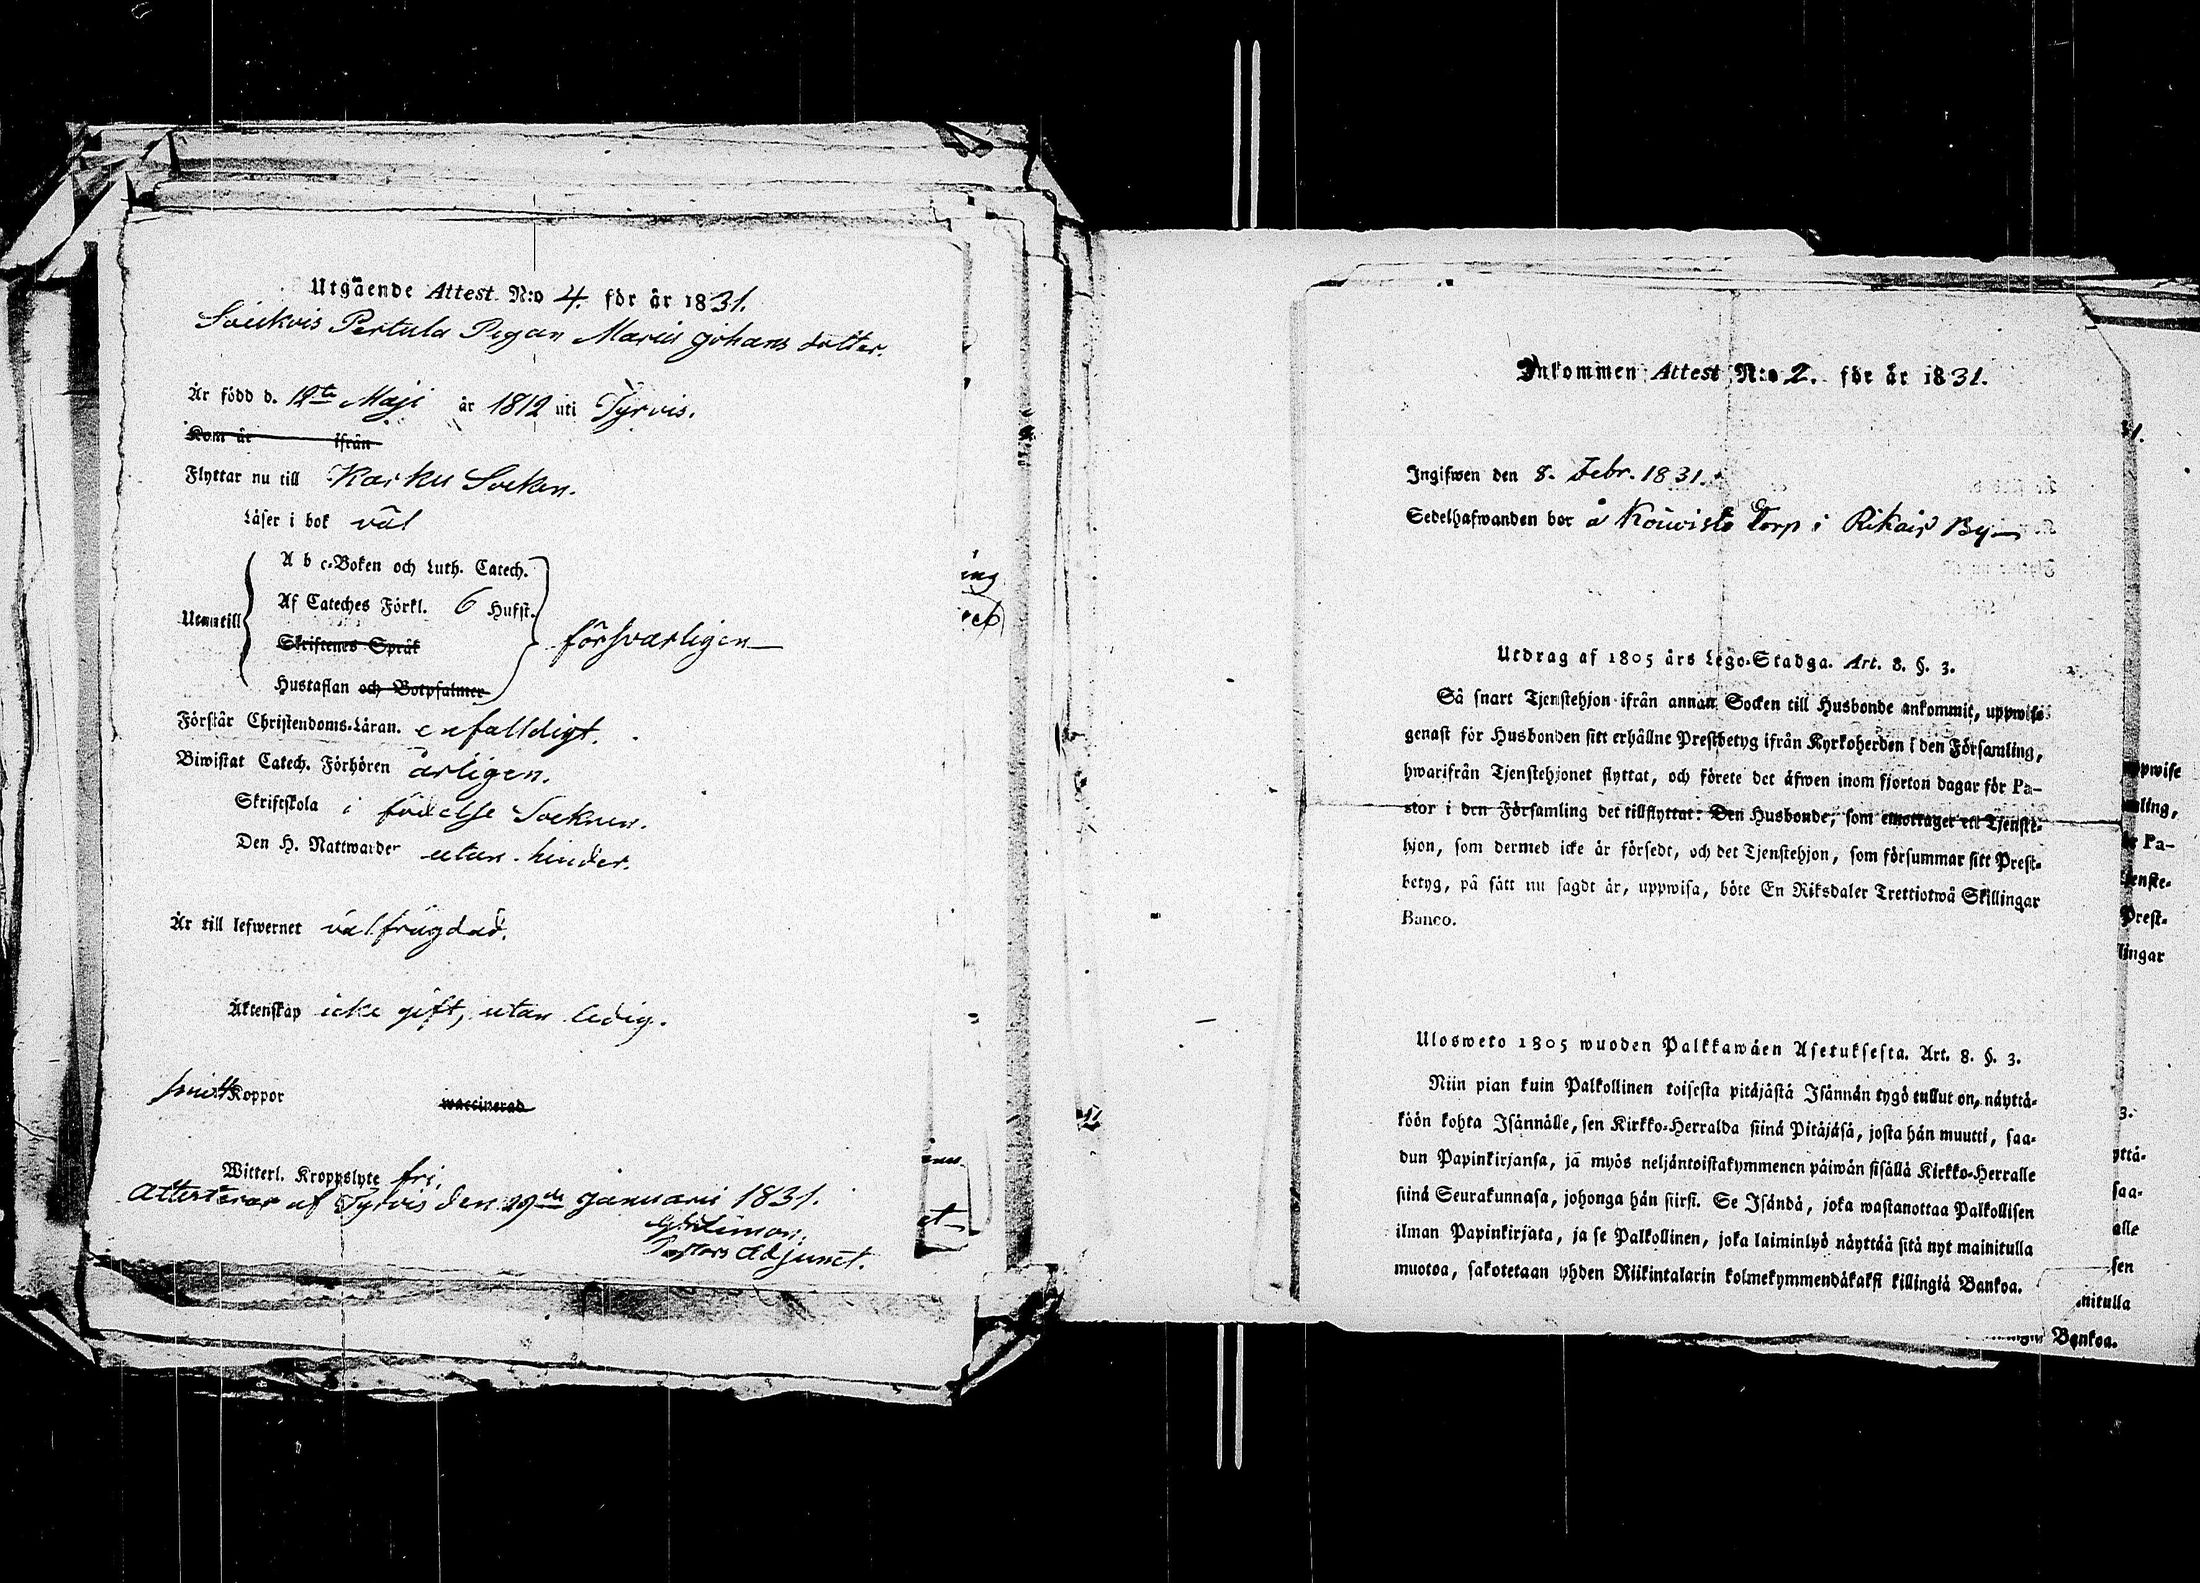 Utgående Attest N:o 4. för år 1831.
Pertula Pigan Maria Johans dotter.
År född d. 12te Maji år 1812 uti Tyrvis.
Kom år ifrån
Flyttar nu till Karku Socken.
Läser i bok väl
A b c-Boken och Luth. Catech.
Af Cateches Förkl. 6 Hufst.
Utantill försvarligen
Skriftenes Språk
Hustaflan och Botpsalmer
Förstår Christendoms-Läran. enfalldigt.
Biwistat Catech. Förhören årligen.
Skriftskola i födelse Socknen.
Den H. Nattwarder utan hinder.
Är till lefwernet välfrägdad.
Äktenskap icke gift, utan ledig.
haft Koppor waccinerad
Witterl. Kroppslyte fri,
Attesterar af Tyrvis den 29de Januarii 1831.
Pastors Adjunct.
Inkommen Attest N:o 2. för år 1831.
Ingifwen den 8. Febr. 1831.
Sedelhafwanden bor å Koivisto Torp i Rikais By
Utdrag af 1805 års Lego-Stadga. Art. 8. §. 3.
Så snart Tjenstehjon ifrån annan Socken till Husbonde ankommit, uppwise
genast för Husbonden sitt erhållne Prestbetyg ifrån Kyrkoherden i den Församling,
hwarifrån Tjenstehjonet flyttat, och förete det äfwen inom fjorton dagar för Pa-
stor i den Församling det tillflyttat: Den Husbonde, som emottager ett Tjenste-
hjon, som dermed icke är försedt, och det Tjenstehjon, som försummar sitt Prest-
betyg, på sätt nu sagdt är, uppwisa, böte En Riksdaler Trettiotwå Skillingar
Banco.
Ulosweto 1805 wuoden Palkkawäen Asetuksesta. Art. 8. §. 3.
Niin pian kuin Palkollinen toisesta pitäjästä Isännän tygö tullut on, näyttä-
köön kohta Isännälle, sen Kirkko-Herralda siinä Pitäjäsä, josta hän muutti, saa-
dun Papinkirjansa, ja myös neljäntoistakymmenen päiwän sisällä Kirkko-Herralle
siinä Seurakunnasa, johonga hän siirsi. Se Isändä, joka wastanottaa Palkollisen
ilman Papinkirjata, ja se Palkollinen, joka laiminlyö näyttää sitä nyt mainitulla
muotoa, sakotetaan yhden Riikintalarin kolmekymmendäkaksi killingiä Bankoa.